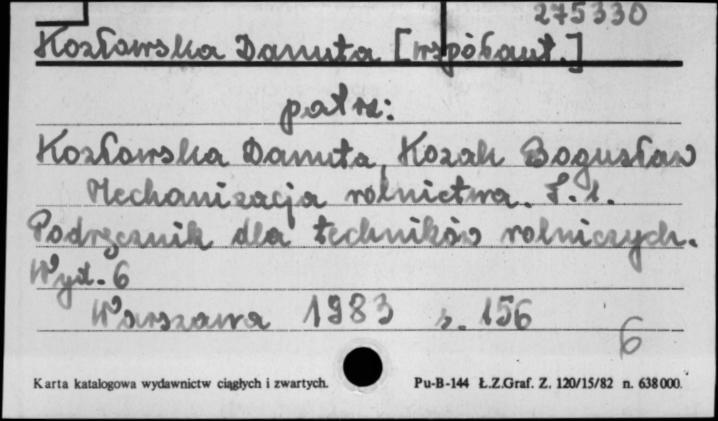 275330
Kozłowska Danuta [współaut.]
patrz:
Kozłowska Danuta, Kozak Bogusław
Mechanizacja rolnictwa. T. 1.
Podręcznik dla techników rolniczych.
Wyd. 6
Warszawa 1983 s. 156
6
Karta katalogowa wydawnictw ciągłych i zwartych. Pu-B-144 Ł.Z.Graf. Z. 120/15/82 n. 638000.